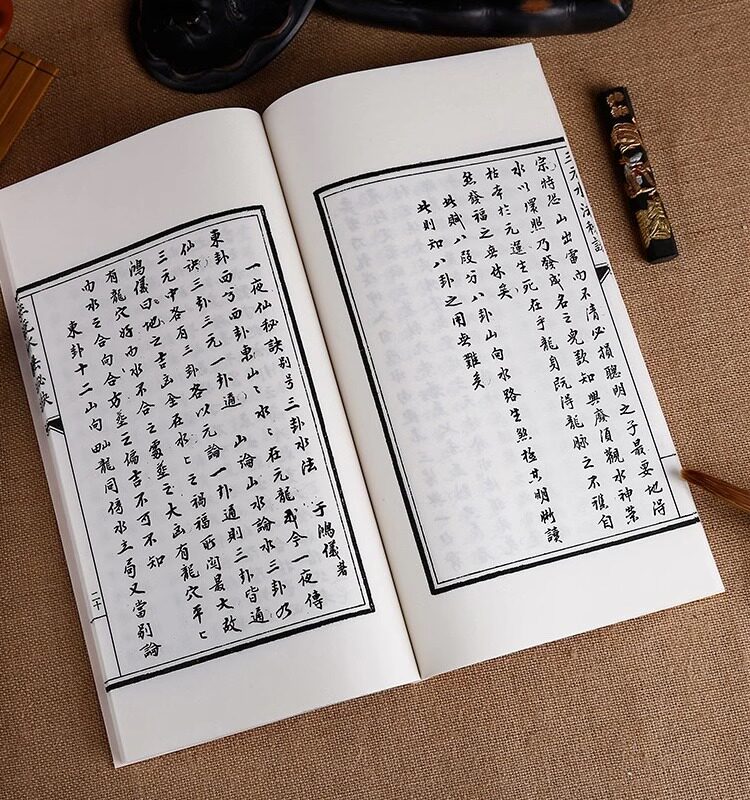 三元水法秘訣
宗特恐山出當内不清必損聰明之子最要地得
水以環照乃發成名之兒欲知興廢須觀水神榮
枯本於元運生死在乎龍身既得龍脈之不雜自
然發福之無休矣
此賦八段分八卦山向水路生煞極其明晰讀
此則知八卦之用無難矣
一夜仙秘訣別号三卦水法 于鴻儀著
東卦西兮西卦東山〻水〻在元龍 即今一夜傳
仙訣三卦三元一卦通 山論山水論水三卦乃
三元中各有三卦各以元論一卦通則三卦皆通
鴻儀曰地之吉凶全在水〻之禍福所関最大故
有龍穴好而水不合之處葬之大凶有龍穴平〻
而水之合向合方葬之偏吉不可不知
東卦十二山向龍同傍水立局又當別論
三元水法秘訣
二十